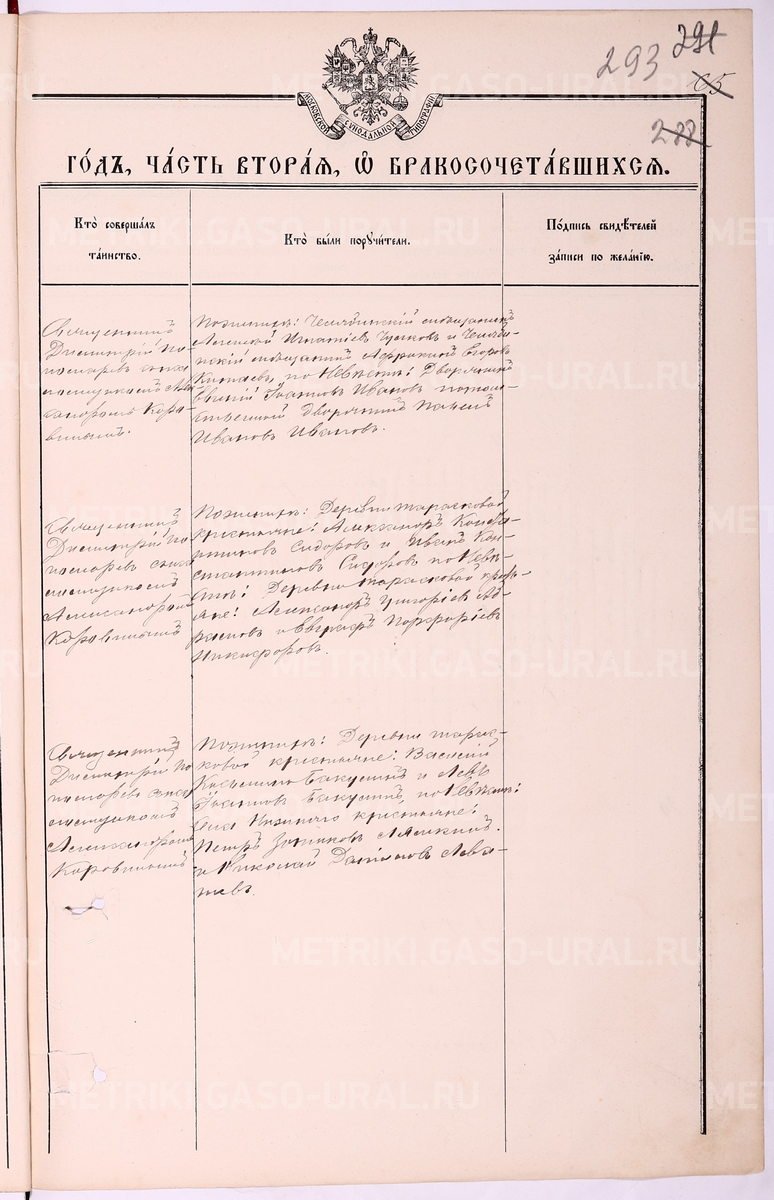 293
291
65
288
МОСКОВСКОЙ СѴНОДАЛЬНОЙ ТИПОГРАФІИ
ГО́ДЪ, ЧА́СТЬ ВТОРА́Я, Ѡ҆ БРАКОСОЧЕТА́ВШИХСЯ.
Кто̀ соверша́лъ
та́инство.
Кто̀ бы́ли поручи́тели.
По́дпись свидѣ́телей
за́писи по жела́нїю.
Священникъ
Димитрій По-
номаревъ съ пса-
ломщикомъ Але-
ксандромъ Коро-
винымъ.
По женихѣ: Челябинскій мѣщанинъ
Алексѣй Игнатіевъ Чулковъ и Челябин-
скій мѣщанинъ Егоровъ
по Невѣстѣ: Дворянинъ
Іоаннъ Ивановъ потом-
ственный Дворянинъ Павелъ
Ивановъ Ивановъ.
Священникъ
Димитрій По-
номаревъ съ пса-
ломщикомъ
Александромъ
Коровинымъ
По женихѣ: Деревни Тарасковой
крестьяне: Александръ
Сидоровъ и Иванъ Кон-
стантиновъ Сидоровъ по Невѣ-
стѣ: Деревни Тарасковой кресть-
яне: Александръ Григоріевъ
и Порфиріевъ
Никифоровъ.
Священникъ
Димитрій По-
номаревъ съ пса-
ломщикомъ
Александромъ
Коровинымъ
По женихѣ: Деревни Тарас-
ковой крестьяне: Василій
Косьминъ Бакусинъ и Левъ
Іоанновъ Бакусинъ, по Невѣстѣ:
Села Нижняго крестьяне:
Петръ
и Николай Даніиловъ Лева-
шевъ.
METRIKI.GASO-URAL.RU